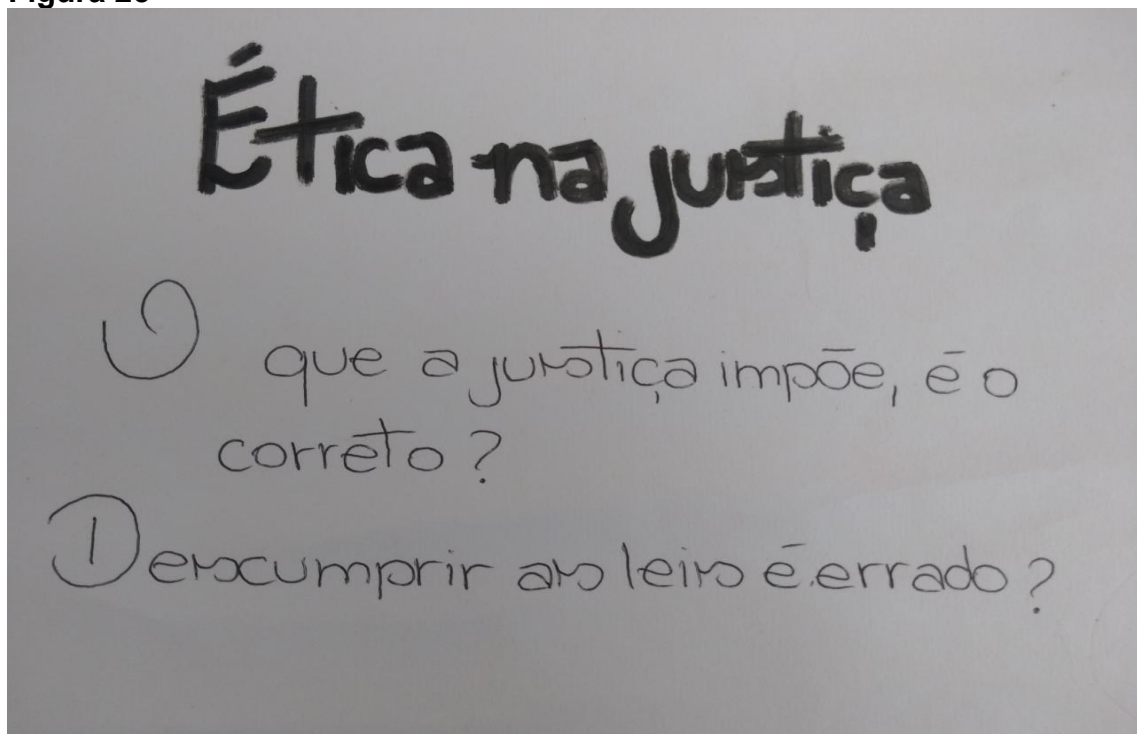 Ética na justiça
O que a justiça impõe, é o
correto?
Descumprir as leis é errado?